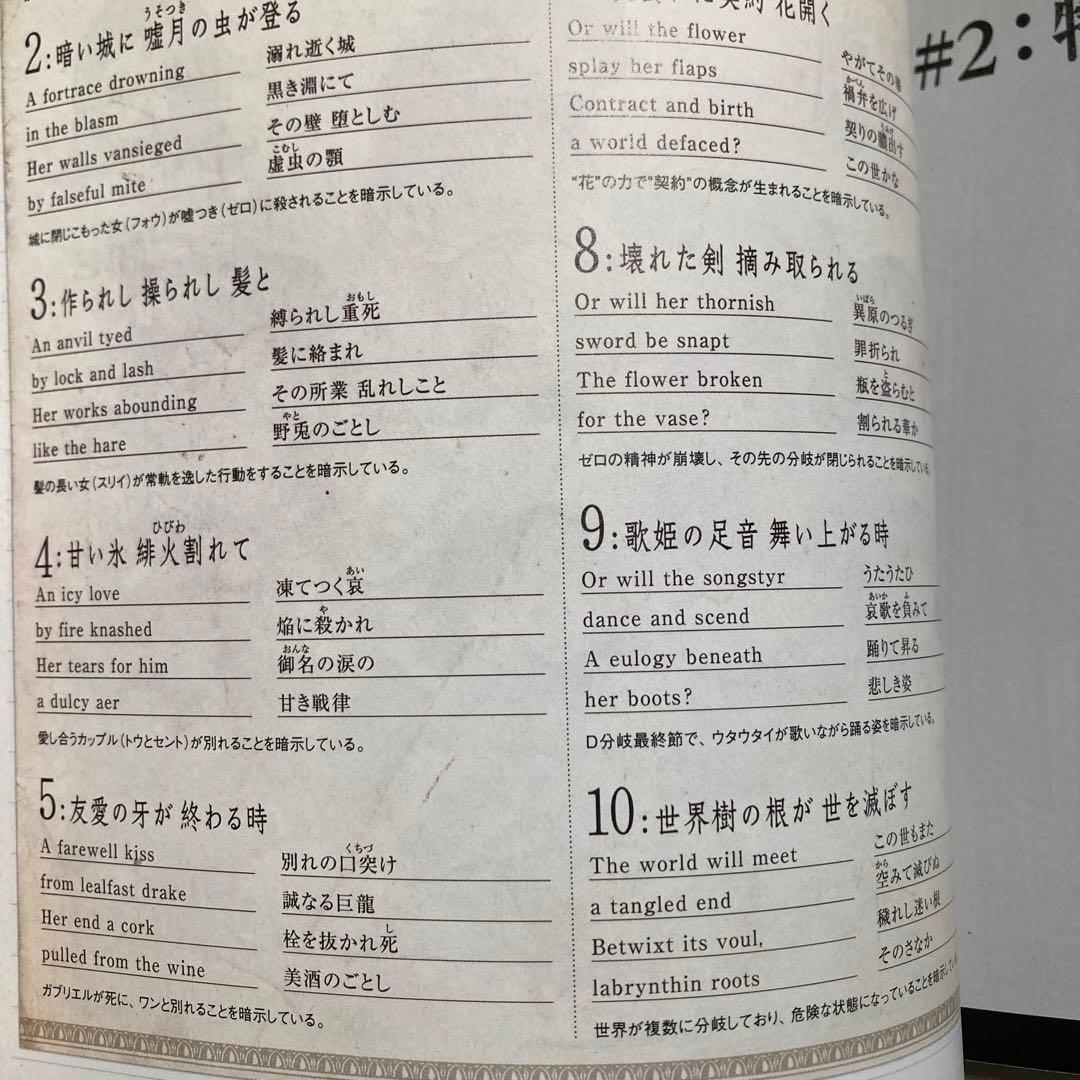 2:暗い城に 嘘月の虫が登る
うそつき
A fortrace drowning
in the blasm
Her walls vansieged
by falseful mite
溺れ逝く城
黒き淵にて
その壁 堕としむ
こむし
虚虫の顎
城に閉じこもった女(フォウ)が嘘つき(ゼロ)に殺されることを暗示している。
3:作られし 操られし 髪と
An anvil tyed
by lock and lash
Her works abounding
like the hare
おもし
縛られし重死
髪に絡まれ
その所業 乱れしこと
やと
野兎のごとし
髪の長い女(スリイ)が常軌を逸した行動をすることを暗示している。
ひびわ
4:甘い氷 緋火割れて
An icy love
by fire knashed
Her tears for him
a dulcy aer
あい
凍てつく哀
や
焔に殺かれ
おんな
御名の涙の
甘き戦律
愛し合うカップル(トウとセント)が別れることを暗示している。
5:友愛の牙が 終わる時
A farewell kiss
from lealfast drake
Her end a cork
pulled from the wine
くちづ
別れの口突け
誠なる巨龍
し
栓を抜かれ死
美酒のごとし
ガブリエルが死に、ワンと別れることを暗示している。
契約 花開く
Or will the flower
splay her flaps
Contract and birth
a world defaced?
やがてその
かべん
禍弁を広げ
うみだ
契りの膿出す
この世かな
“花”の力で“契約”の概念が生まれることを暗示している。
8:壊れた剣 摘み取られる
Or will her thornish
sword be snapt
The flower broken
for the vase?
いばら
異原のつるぎ
罪折られ
と
瓶を盗らむと
割られる華か
ゼロの精神が崩壊し、その先の分岐が閉じられることを暗示している。
9:歌姫の足音 舞い上がる時
Or will the songstyr
dance and scend
A eulogy beneath
her boots?
うたうたひ
あいか ふ
哀歌を負みて
踊りて昇る
悲しき姿
D分岐最終節で、ウタウタイが歌いながら踊る姿を暗示している。
10:世界樹の根が 世を滅ぼす
The world will meet
a tangled end
Betwixt its voul,
labrynthin roots
この世もまた
から
空みて滅びぬ
穢れし迷い根
そのさなか
世界が複数に分岐しており、危険な状態になっていることを暗示している
#2: